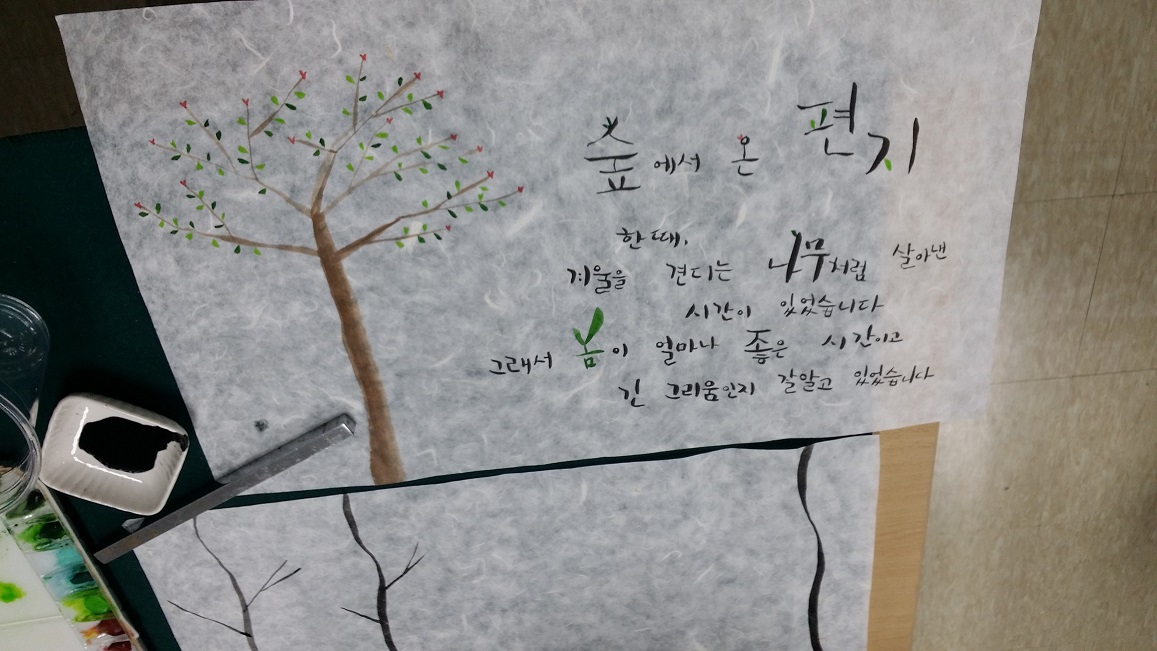 숲에서 온 편지
한때,
겨울을 견디는 나무처럼 살아낸
시간이 있었습니다
그래서 봄이 얼마나 좋은 시간이고
긴 그리움인지 잘알고 있었습니다